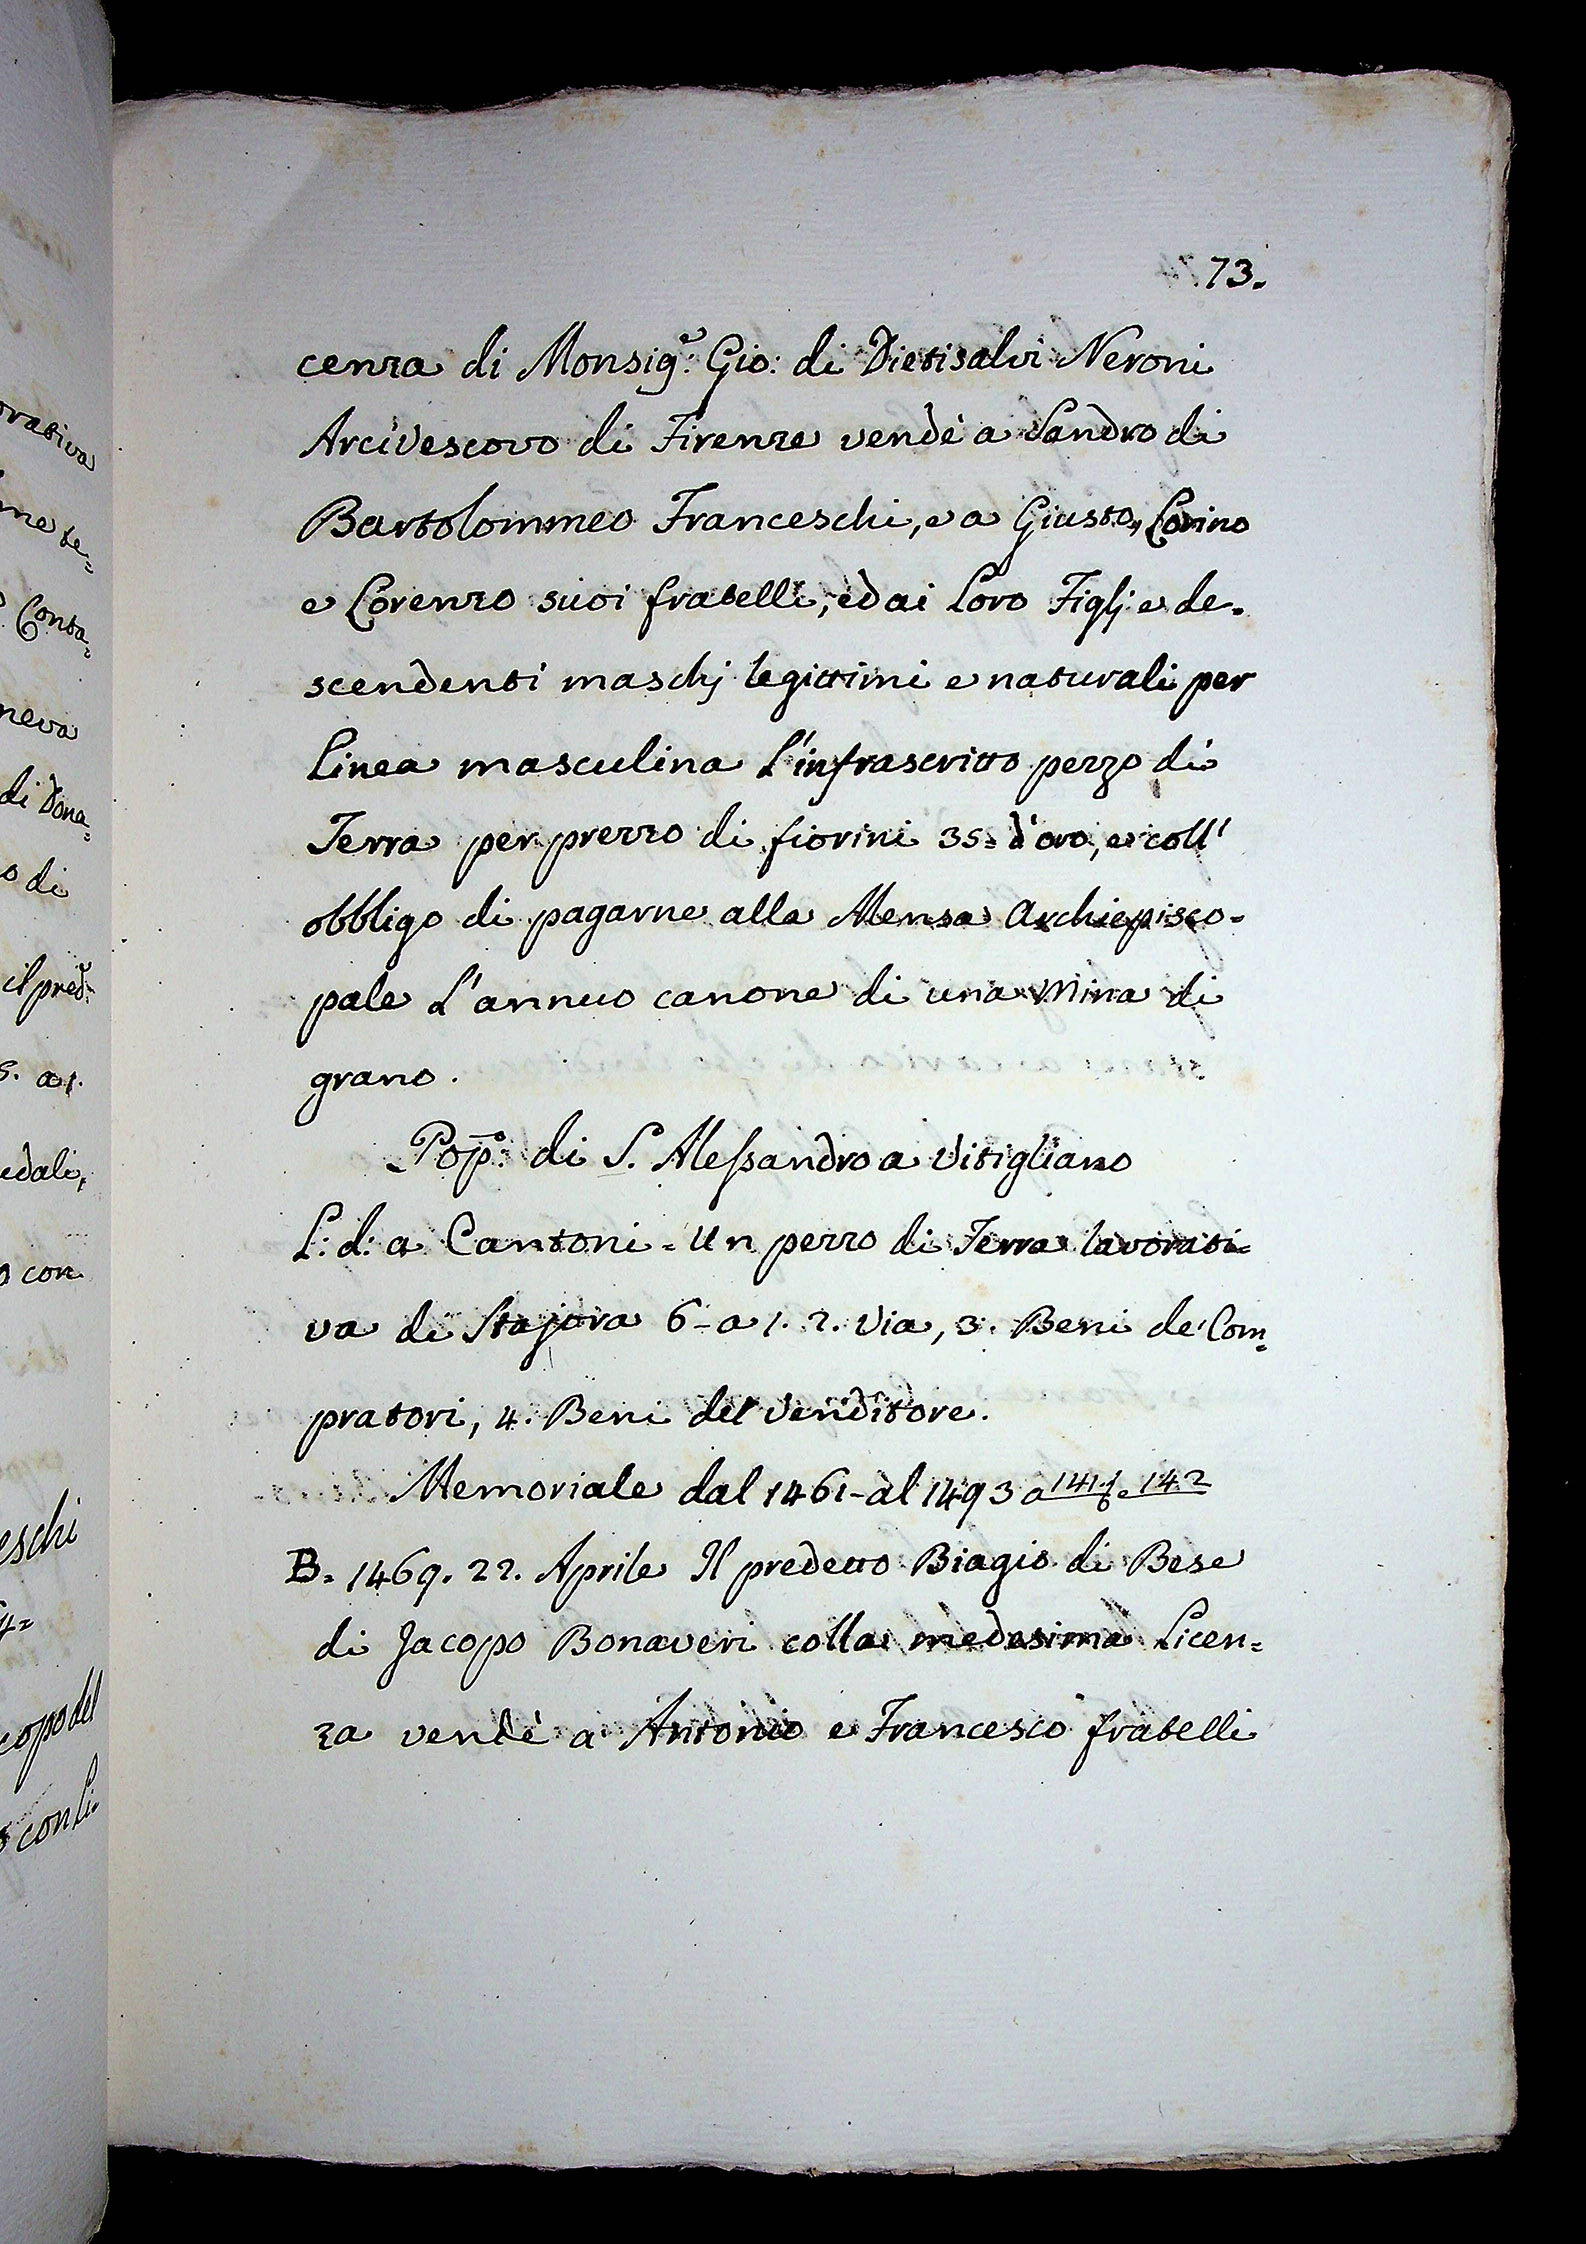 73.
cenza di Monsig.r Gio: di Dietisalvi Neroni
Arcivescovo di Firenze vendè a Sandro di
Bartolommeo Franceschi, e a Giusto, Lorino
e Lorenzo suoi fratelli, ed ai Loro Figlj e de=
scendenti maschj legittimi e naturali per
Linea masculina L'infrascritto pezzo di
Terra per prezzo di fiorini 35= d'oro, e coll'
obbligo di pagarne alla Mensa Archiepisco=
pale L'annuo canone di una Mina di
grano.
Pop.o: di S. Alessandro a Vitigliano
L: d: a Cantoni = Un pezzo di Terra lavorati=
va di Stajora 6 - a 1. 2. Via, 3. Beni de' Com=
pratori, 4. Beni del Venditore.
Memoriale dal 1461 - al 1493 a 141. e 142
B. 1469. 22. Aprile Il predetto Biagio di Bese
di Jacopo Bonaveri colla medesima Licen=
za vendè a Antonio e Francesco fratelli
orativa
me te=
Conta=
neva
di Dona=
o di
il pred:
S. a 1.
edali,
o con
eschi
4=
copo del
con Li=